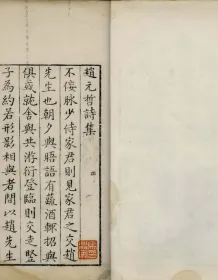 趙元哲詩集
不佞脉少侍家君則見家君之交趙
先生也朝夕與晤語有蔬酒輒招與
俱或就舍與共游衍登臨則交走豎
子為約若形影相與者間以趙先生